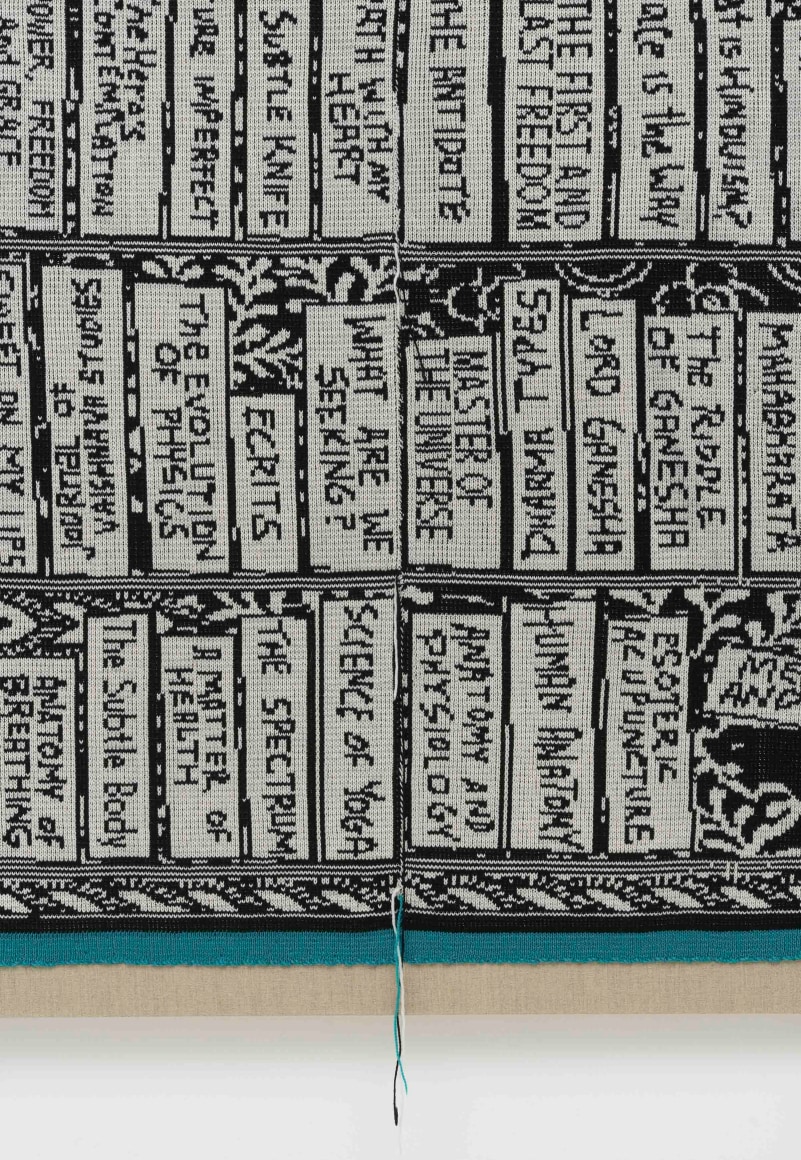 OWER, FREEDOM
AND GRACE
The Hero's
CONTEMPLATION
URE IMPERFECT
SUBTLE KNIFE
RTH WITH MY
HEART
THE ANTIDOTE
THE FIRST AND
LAST FREEDOM
ace is the Way
at is HINDUISM?
WEET ON MY LIPS
JOURNAL OF
VAISHNAVA STUDIES
THE EVOLUTION
OF PHYSICS
ECRITS
WHAT ARE WE
SEEKING?
MASTER OF
THE UNIVERSE
DHARMA TYPES
LORD GANESHA
THE RIDDLE
OF GANESHA
MAHABHARATA
ANATOMY OF
BREATHING
The Subtle Body
A MATTER OF
HEALTH
THE SPECTRUM
SCIENCE OF YOGA
ANATOMY AND
PHYSIOLOGY
HUMAN ANATOMY
ESOTERIC
ACUPUNCTURE